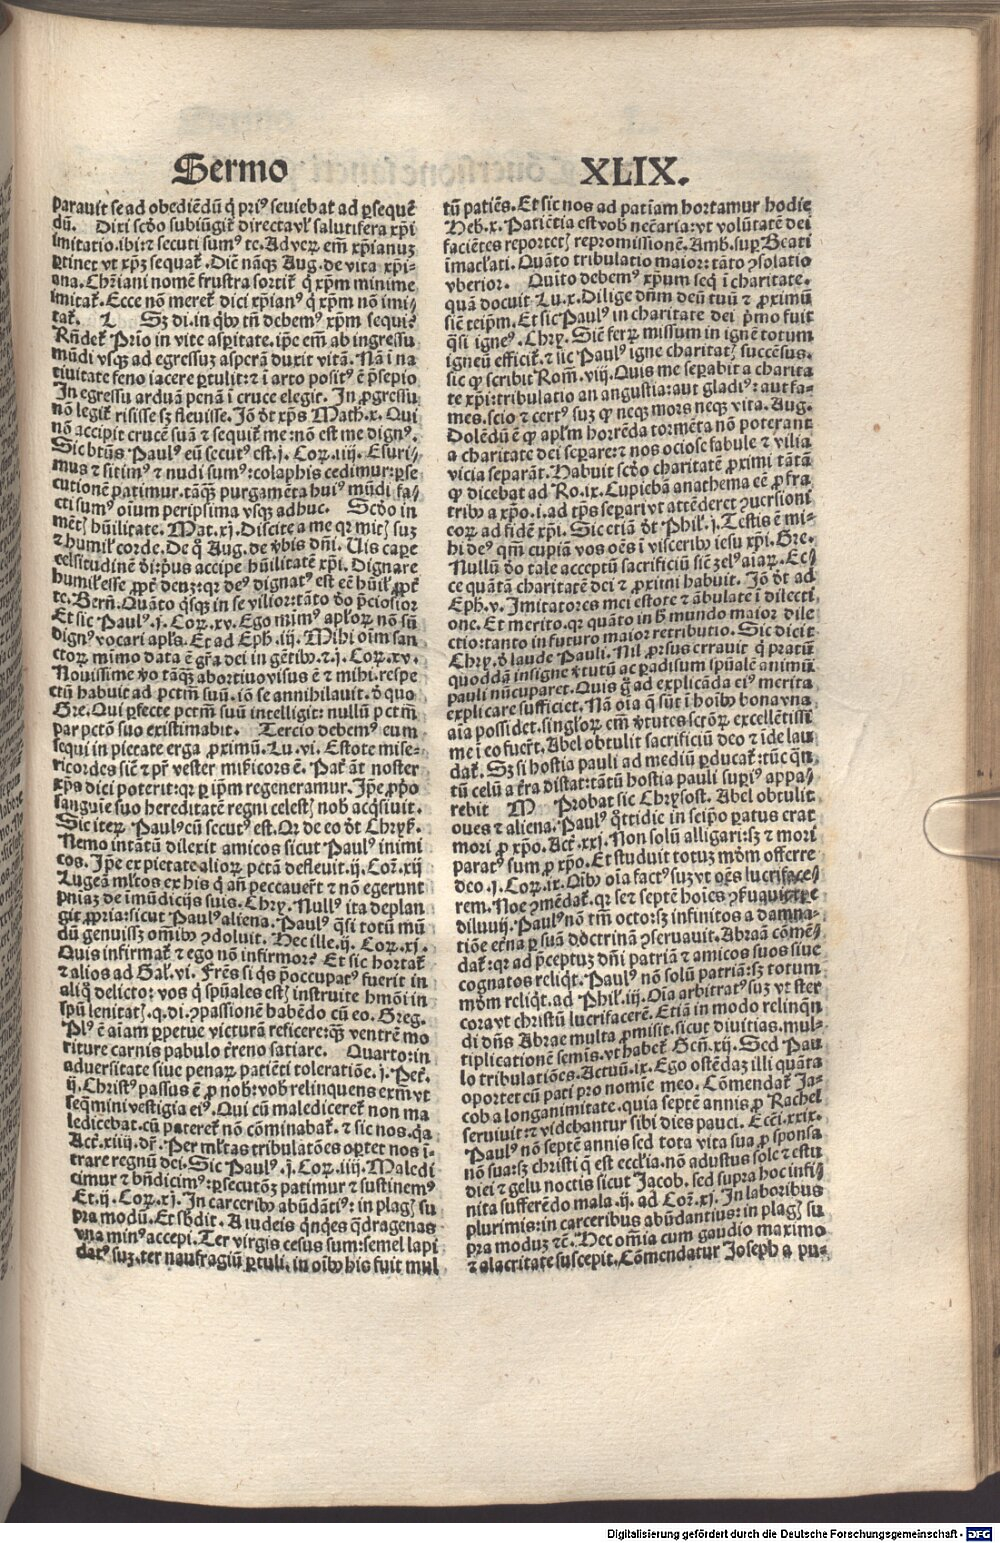 Sermo XLIX.
parauit se ad obediēdū q̄ priꝰ seuiebat ad ꝑsequē
dū. Dixi scd̓o subiūgiē directa vl̓ salutifera xp̄i
imitatio.ibi:⁊ secuti sumꝰ te. Ad veꝝ em̄ xp̄ianuꝫ
ꝑtinet vt xp̄ꝫ sequat̄. Diē nāqꝫ Aug. de vita xp̄i-
ana. Chr̄iani nomē frustra sortit̄ q̄ xp̄m minime
imitat̄. Ecce nō meret̄ dici xp̄ianꝰ q̄ xp̄m nō imi/
tat̄. L Sꝫ di. in qb̓ꝫ tn̄ debemꝰ xp̄m sequi?
Rn̄det̄ Prio in vite aspitate. ip̄e em̄ ab ingressu
mūdi vsqꝫ ad egressuꝫ asperā duxit vitā. Nā i na
tiuitate feno iacere ꝑtulit:⁊ i arto positꝰ ē p̄sepio
In egressu arduā penā i cruce elegit. In ꝓgressu
nō legit̄ risisse sꝫ fleuisse. Jō d̓t xp̄s Math.x. Qui
nō accipit crucē suā ⁊ sequit̄ me:nō est me dignꝰ.
Sic btūs Paulꝰ eū secutꝰ est.j. Coꝝ.iiij. Esuri-
mus ⁊ sitimꝰ ⁊ nudi sumꝰ:colaphis cedimur:ꝑse
cutionē patimur.tāqꝫ purgamēta huiꝰ mūdi fa/
cti sumꝰ oīum peripsima vsqꝫ adhuc. Scd̓o in
mētꝭ hūilitate. Mat.xj. Discite a me qꝛ mitꝭ suꝫ
⁊ humil̓ corde. De q̄ Aug. de v̓bis dn̄i. Uis cape
celsitudinē d̓i:pꝰus accipe hūilitatē xp̄i. Dignare
humil̓ esse ꝓpt̓ deuꝫ:qꝛ deꝰ dignatꝰ est eē hūil̓ ꝓpt̓
te. Bern̄. Quāto q̄sqꝫ in se vilior:tāto d̓o p̄ciosior
Et sic Paulꝰ.j. Coꝝ.xv. Ego mimꝰ apl̓oꝝ nō sū
dignꝰ vocari apl̓s. Et ad Eph.iij. Mihi oīm san
ctoꝝ mimo data ē gr̄a dei in gētib̓ꝫ.⁊.j. Coꝝ.xv.
Nouissime v̓o tāqꝫ abortiuo visus ē ⁊ mihi.respe
ctū habuit ad pctm̄ suū.iō se annihilauit.d̓ quo
Gre. Qui ꝑfecte pctm̄ suū intelligit: nullū pctm̄
par pctō suo existimabit. Tercio debemꝰ eum
sequi in pietate erga ꝓximū. Lu.vi. Estote mise-
ricordes sicē ⁊ pr̄ vester mi̓ricors ē. Pat̄ āt noster
xp̄s dici poterit: qꝛ ꝑ ip̄m regeneramur. Jp̄e ꝓp̓o
sanguīe suo hereditatē regni celestꝭ nob̓ acq̄siuit.
Sic iteꝝ Paulꝰ cū secutꝰ est. Qꝛ de eo d̓t Chryꝭ.
Nemo intātū dilexit amicos sicut Paulꝰ inimi
cos. Jp̄e ex pietate alioꝝ pctā defleuit.ij. Coꝝ.xij
Lugeā ml̓tos ex his q̄ añ peccauer̄t ⁊ nō egerunt
pn̄iaꝫ de imūdicijs suis. Chry. Nullꝰ ita deplan
git ꝓpria:sicut Paulꝰ aliena. Paulꝰ q̄si totū mū
dū genuissꝫ oīb̓ꝫ ꝯdoluit. Hec ille.ij. Coꝝ.xj.
Quis infirmat̄ ⁊ ego nō infirmor? Et sic hortat̄
⁊ alios ad Gal̓.vi. Frēs si q̄s p̄occupatꝰ fuerit in
aliq̄ delicto: vos q̄ spūales estꝭ instruite hm̄oi in
spū lenitatꝭ.q.di.ꝯpassionē habēdo cū eo. Greg.
Plꝰ ē aīam ꝑpetue victurā reficere:q̄ꝫ ventrē mo
riture carnis pabulo t̓reno satiare. Quarto:in
aduersitate siue penaꝝ patiēti toleratiōe.j. Pet̄.
ij. Christꝰ passus ē ꝓ nob̓:vob̓ relinquens exm̄ vt
seq̄mini vestigia eiꝰ. Qui cū malediceret̄ non ma
ledicebat.cū pateret̄ nō cōminabat̄.⁊ sic nos.q̄a
Act̄.xiiij.dr̄. Per ml̓tas tribulatōes oꝑtet nos i-
trare regnū dei. Sic Paulꝰ.j. Coꝝ.iiij. Maledi
cimur ⁊ bn̄dicimꝰ:ꝑsecutōꝫ patimur ⁊ sustinemꝰ
Et.ij. Coꝝ.xj. In carcerib̓ꝫ abūdātiꝰ: in plagꝭ su
pra modū. Et sb̓dit. A iudeis q̄nqꝫes q̄dragenas
vna minꝰ accepi. Ter virgis cesus sum:semel lapi
datꝰ suꝫ.ter naufragiū ꝑtuli.in oīb̓ꝫ his fuit mul
tū patiēs. Et sic nos ad patiam hortamur hodie
Heb.x. Patiētia est vob̓ necāria:vt volūtatē dei
faciētes reportetꝭ repromissionē. Amb. suꝑ Beati
īmacl̓ati. Quāto tribulatio maior: tāto ꝯsolatio
vberior. Quito debemꝰ xp̄um seq̄ i charitate.
quā docuit Lu.x. Dilige dn̄m deū tuū ⁊ ꝓximū
siē teip̄m. Et sic Paulꝰ in charitate dei p̄mo fuit
q̄si ignꝰ. Chry. Siē ferꝝ missum in ignē totum
igneū efficit̄.⁊ sic Paulꝰ igne charitatꝭ succēsus.
sic qꝫ scribit Rom̄.viij. Quis me seꝑabit a charita
te xp̄i:tribulatio an angustia:aut gladiꝰ: aut fa-
mes.scio ⁊ certꝰ suꝫ qꝫ neqꝫ mors neqꝫ vita. Aug.
Dolēdū ē qꝫ apl̓m horrēda tormēta nō poterant
a charitate dei seꝑare:⁊ nos ociose fabule ⁊ vilia
vicia separāt. Habuit scd̓o charitatē ꝓximi tātā
qꝫ dicebat ad Ro.ix. Cupiebā anathema eē ꝓ fra
trib̓ꝫ a xp̄o.i.ad tp̄s separi vt attēderet ꝯuersioni
eoꝝ ad fidē xp̄i. Sic etiā d̓t Phil̓.j. Testis ē mi-
hi deꝰ qm̄ cupiā vos oēs i visceribꝫ iesu xp̄i. Gre.
Nullū d̓o tale acceptū sacrificiū siē zelꝰ aīaꝝ. Ec/
ce quātā charitatē dei ⁊ ꝓximi habuit. Jō d̓t ad
Eph.v. Imitatores mei estote ⁊ ābulate i dilecti
one. Et merito.qꝛ quāto in h̄ mundo maior dile
ctio:tanto in futuro maior retributio. Sic dicit
Chry. d̓ laude Pauli. Nil ꝓrsus errauit q̄ pratū
quoddā insigne v̓tutū ac paradisum spūalē animū
pauli nūcuparet. Quis g̓ ad explicāda eiꝰ merita
explicare sufficiet. Nā oīa q̄ sūt i hoīb̓ꝫ bona vna
aīa possidet.singl̓oꝝ em̄ v̓tutes scrōꝝ excellētissi
me i eo fuer̄t. Abel obtulit sacrificiū deo ⁊ īde lau
dat̄. Sꝫ si hostia pauli ad mediū ꝑducat̄:tūc q̄n
tū celū a t̓ra distat:tātū hostia pauli supiꝰ appa/
rebit M Probat sic Chrysost. Abel obtulit
oues ⁊ aliena. Paulꝰ q̄ttidie in seip̄o paratus erat
mori ꝓ xp̄o. Act̄.xxj. Non solū alligari:sꝫ ⁊ mori
paratꝰ sum ꝓ xp̄o. Et studuit totuꝫ mōm offerre
deo.j. Coꝝ.ix. Oīb̓ꝫ oīa factꝰ suꝫ vt oēs lucriface/
rem. Noe ꝯmēdat̄.qꝛ se ⁊ septē hoīes ꝯẜuauit tpe
diluuij. Paulꝰ nō tm̄ octo:sꝫ infinitos a damna-
tiōe et̓na ꝑ suā doctrinā ꝯseruauit. Abraā cōmē/
dat̄:qꝛ ad p̄ceptuꝫ dn̄i patriā ⁊ amicos suos siue
cognatos reliq̄t. Paulꝰ nō solū patriā:sꝫ totum
mōm reliq̄t. ad Phil̓.iij. Oīa arbitratꝰ suꝫ vt ster
cora vt christū lucrifacerē. Etiā in modo relinq̄n
di dn̄s Abrae multa ꝓmisit.sicut diuitias.mul-
tiplicationē semis.vt habet̄ Gen̄.xij. Sed Pau
lo tribulatiōes. Actuū.ix. Ego ostēdaꝫ illi quāta
oportet cū pati pro nomīe meo. Cōmendat̄ Ja-
cob a longanimitate.quia septē annis ꝓ Rachel
seruiuit:⁊ videbantur sibi dies pauci. Eccī.xxix.
Paulꝰ nō septē annis sed tota vita sua ꝓ sponsa
nō sua:sꝫ christi q̄ est eccl̓ia.nō adustus sole ⁊ estu
diei ⁊ gelu noctis sicut Jacob. sed supra hoc infi/
nita sufferēdo mala.ij. ad Coꝝ.xj. In laboribus
plurimis:in carceribus abūdantius: in plagꝭ su
pra moduꝫ ⁊c̄. Hec omīa cum gaudio maximo
⁊ alacritate suscepit. Cōmendatur Joseph a pu-
Digitalisierung gefördert durch die Deutsche Forschungsgemeinschaft - DFG